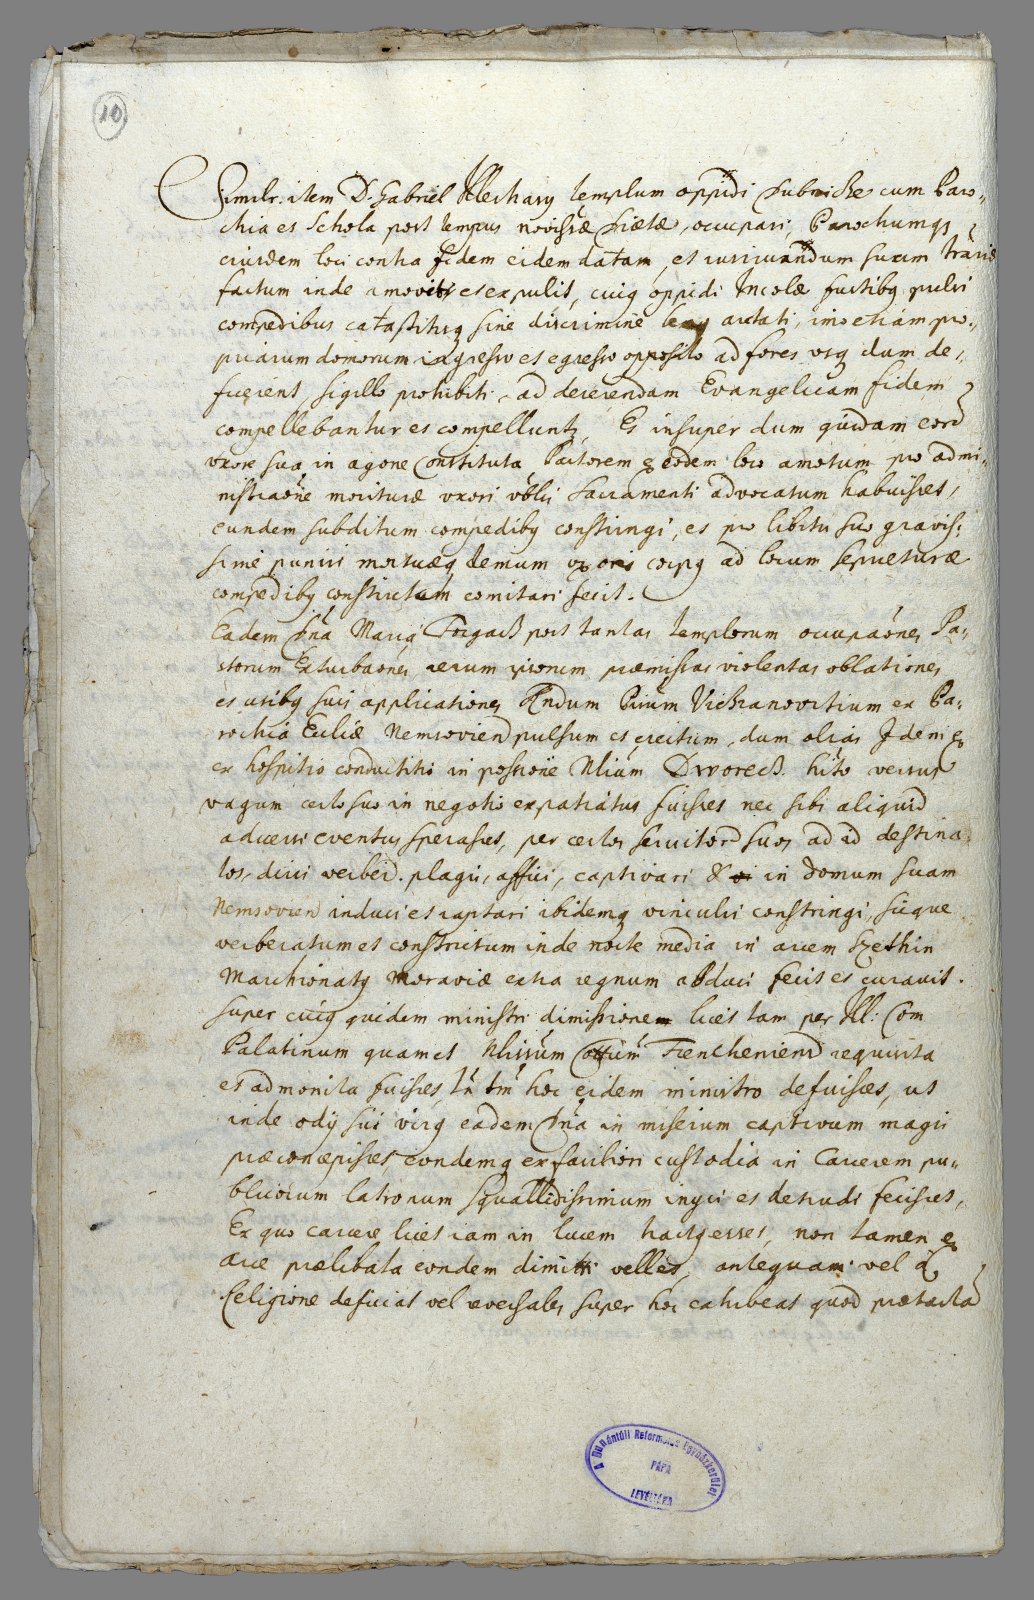 10
Similr. item D. Gabriel Illeshazy templum oppidi Dubnicze cum Paro-
chia et Schola post tempus novissæ Diætæ, occupari, Parochumq3
eiusdem loci contra fidem eidem datam, et iusiurandum suum
factum inde amoveri et expelli, cuiq oppidi Incolæ fustibq pulsi
compedibus catastisq sine discrimine arctati, imo etiam pro-
priarum domorum ingressu et egressu opposito ad fores usq dum de-
ficerent sigillo prohibiti, ad deserendam Evangelicam fidem
compellebantur et compellunt, Et insuper dum quidam eord
uxore sua in agone constituta Pastorem ex eodem loco amotum pro admi-
nistraone morituræ uxori Sacramenti advocatum habuisset,
eundem subditum compedibq constringi, et pro libitu suo gravis-
sime puniri mortuæq demum uxoris corpq ad locum sepulturæ
compedibq constrictum comitari fecit.
Eadem Dna Maria Forgach post tantas templorum occupaones Pa-
storum exturbaones rerum ipsorum præmissas violentas oblationes
et usibq suis applicationes Andum Prium Vichranovitium ex Pa-
rochia Ecliæ Nemsoviend pulsum et eiectum, dum alias Idem ex
ex hospitio conductitio in possione Nliam Dworecz. hito versus
vagum certo suo in negotio expatiatus fuisset nec sibi aliquid
adversi eventus sperasset, per certos servitord suos ad id destina
tos, diris verberd. plagis, affici, captivari & in domum suam
Nemsovien induci et raptari ibidemq vinculis constringi, sicque
verberatum et constrictum inde nocte media in arcem Szethin
Marchionatq Moraviæ extra regnum abduci fecit et curavit.
Super cuiq quidem ministri dimissione licet tam per Ill: Com
Palatinum quam et Nlissum Cottum Trencheniend requisita
et admonita fuisset, tn tm hoc eidem ministro defuisset, ut
inde odij sui virq eadem Dna in miserum captivum magis
præconcepisset eundemq ex faciliori custodia in Carcerem pu-
blicorum latronum squallidissimum inijci et detrudi fecisset,
Ex quo carcere licet iam in lucem tractq esset, non tamen ex
arce prælibata eundem dimitti vellet, antequam vel a
Religione deficiat vel reversales super hoc exhibeat quod prætacta
A Dunántúli Református Egyházkerület
PÁPA
LEVÉLTÁRA